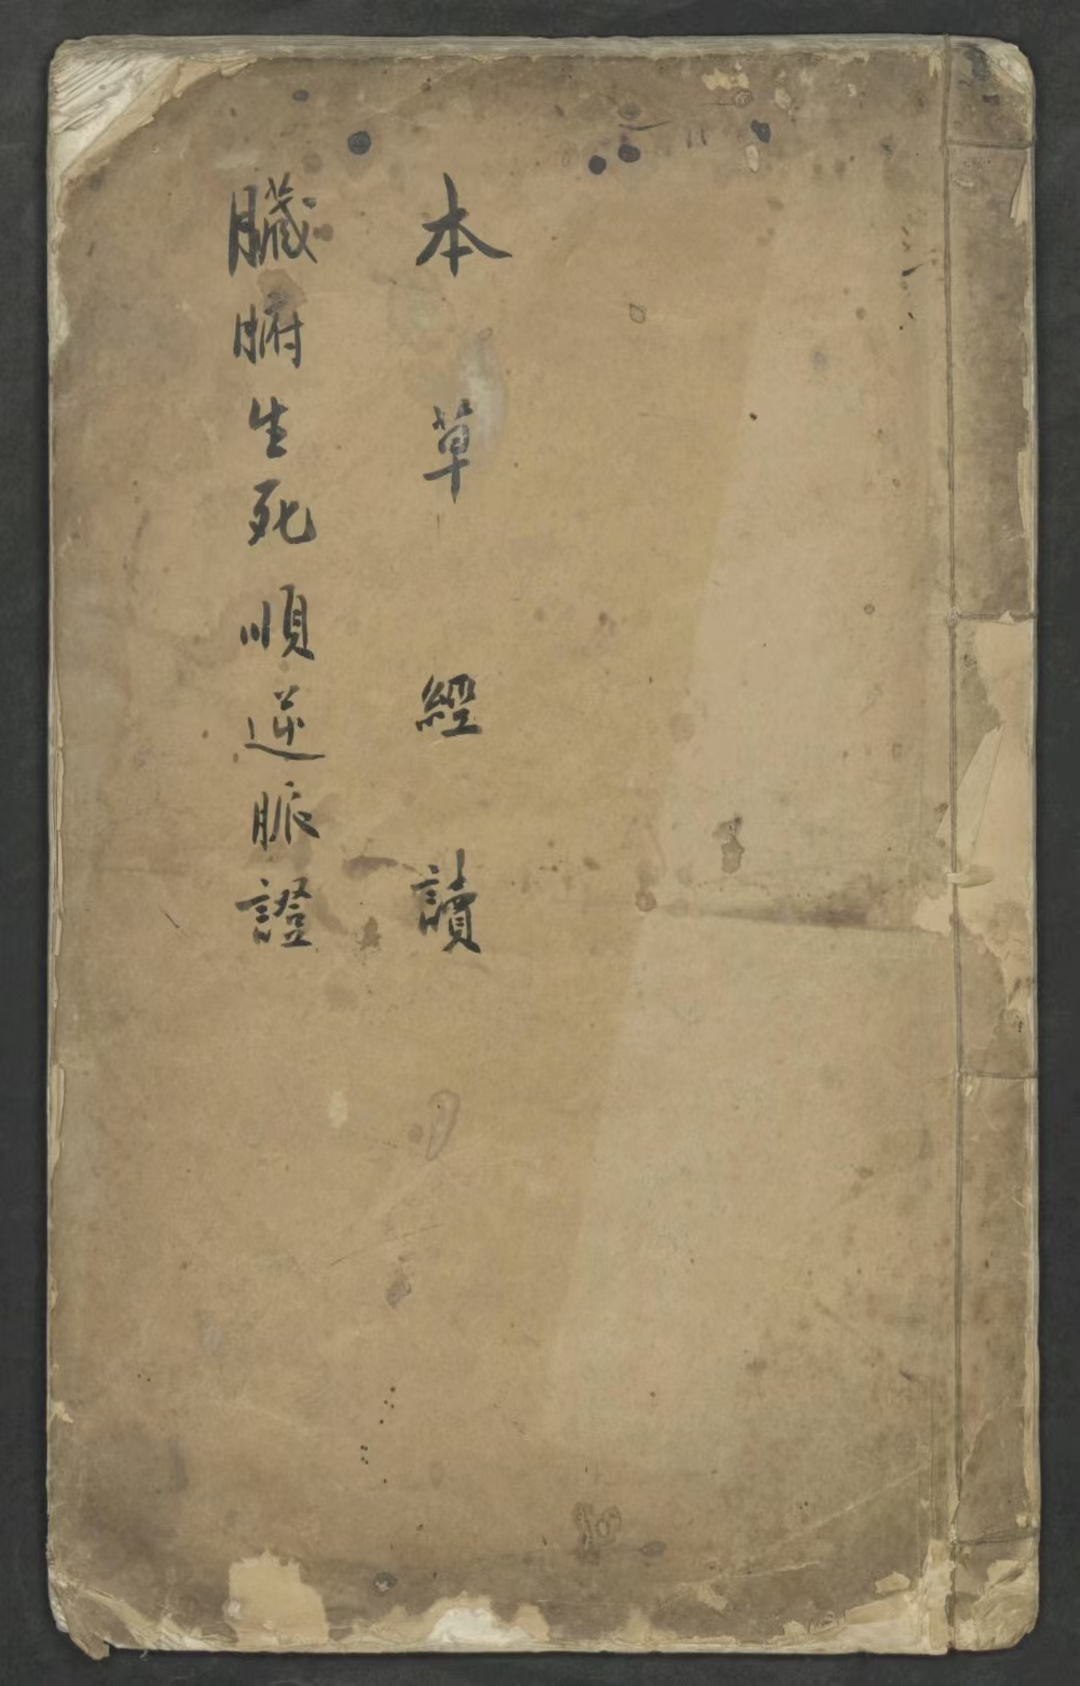 本草經讀
臟腑生死順逆脈證